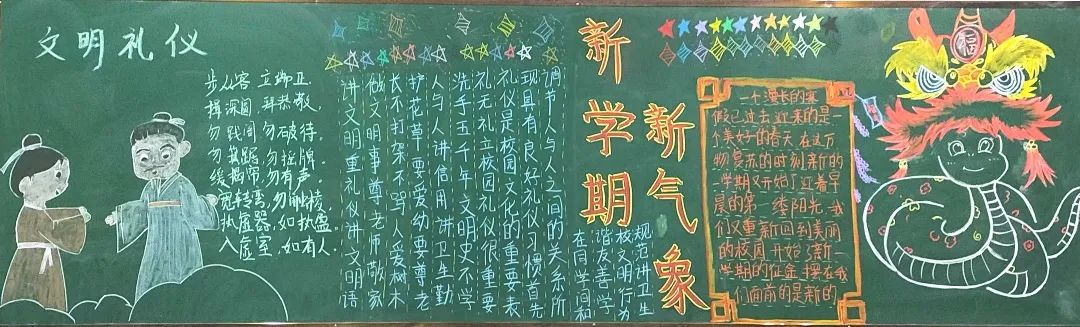 文明礼仪
步从容 立端正
揖深圆 拜恭敬
勿践阈 勿破待
勿箕踞 勿
缓揭帘 勿有声
宽转弯 勿触棱
执虚器 如执盈
入虚室 如有人
讲文明重礼仪讲文明语
做文明事尊老师敬家
长不打架不骂人爱树木
护花草要爱幼要尊老
人与人讲信用讲卫生勤
洗手五千年文明史不学
礼无礼立校园礼仪很重要
礼仪是校园文化的重要表
现具有良好礼仪习惯首先
调节人与人之间的关系所
在同学间和
谐友善学
校文明行为
规范讲卫生
新学期
新气象
一个漫长的寒
假已过去迎来的是一
个美好的春天在这万
物复苏的时刻新的
一学期又开始了迎着早
晨的第一缕阳光我
们又重新回到美丽
的校园开始了新一
学期的征途摆在我
们面前的是新的
福